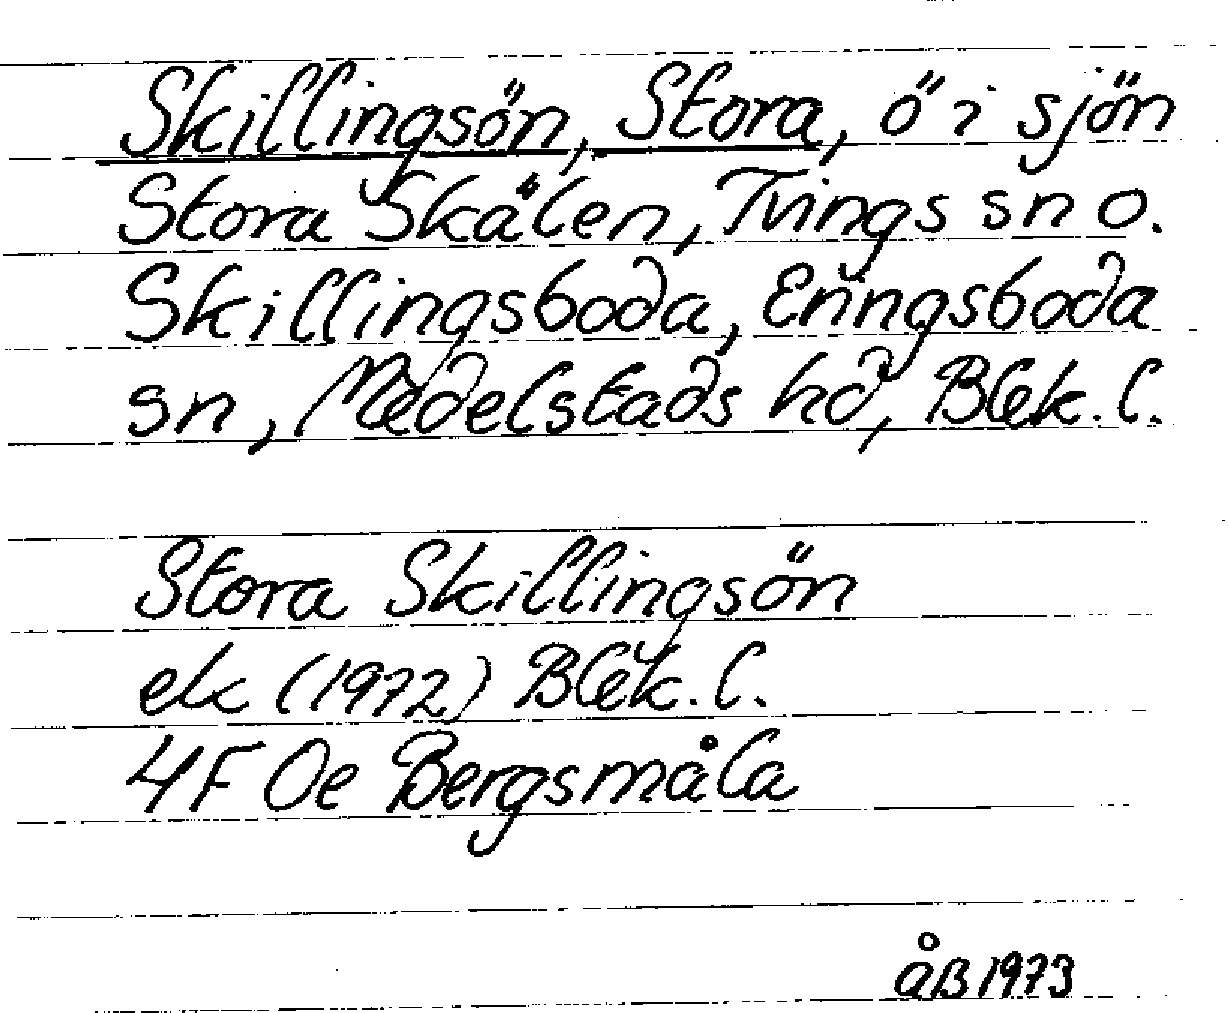 Skillingsön, Stora, ö i sjön
Stora Skälen, Tvings sn o.
Skillingsboda, Eringsboda
sn, Medelstads hd, Blek. l.
Stora Skillingsön
ek (1972) Blek. l.
4F Oe Bergsmåla
ÅB 1973